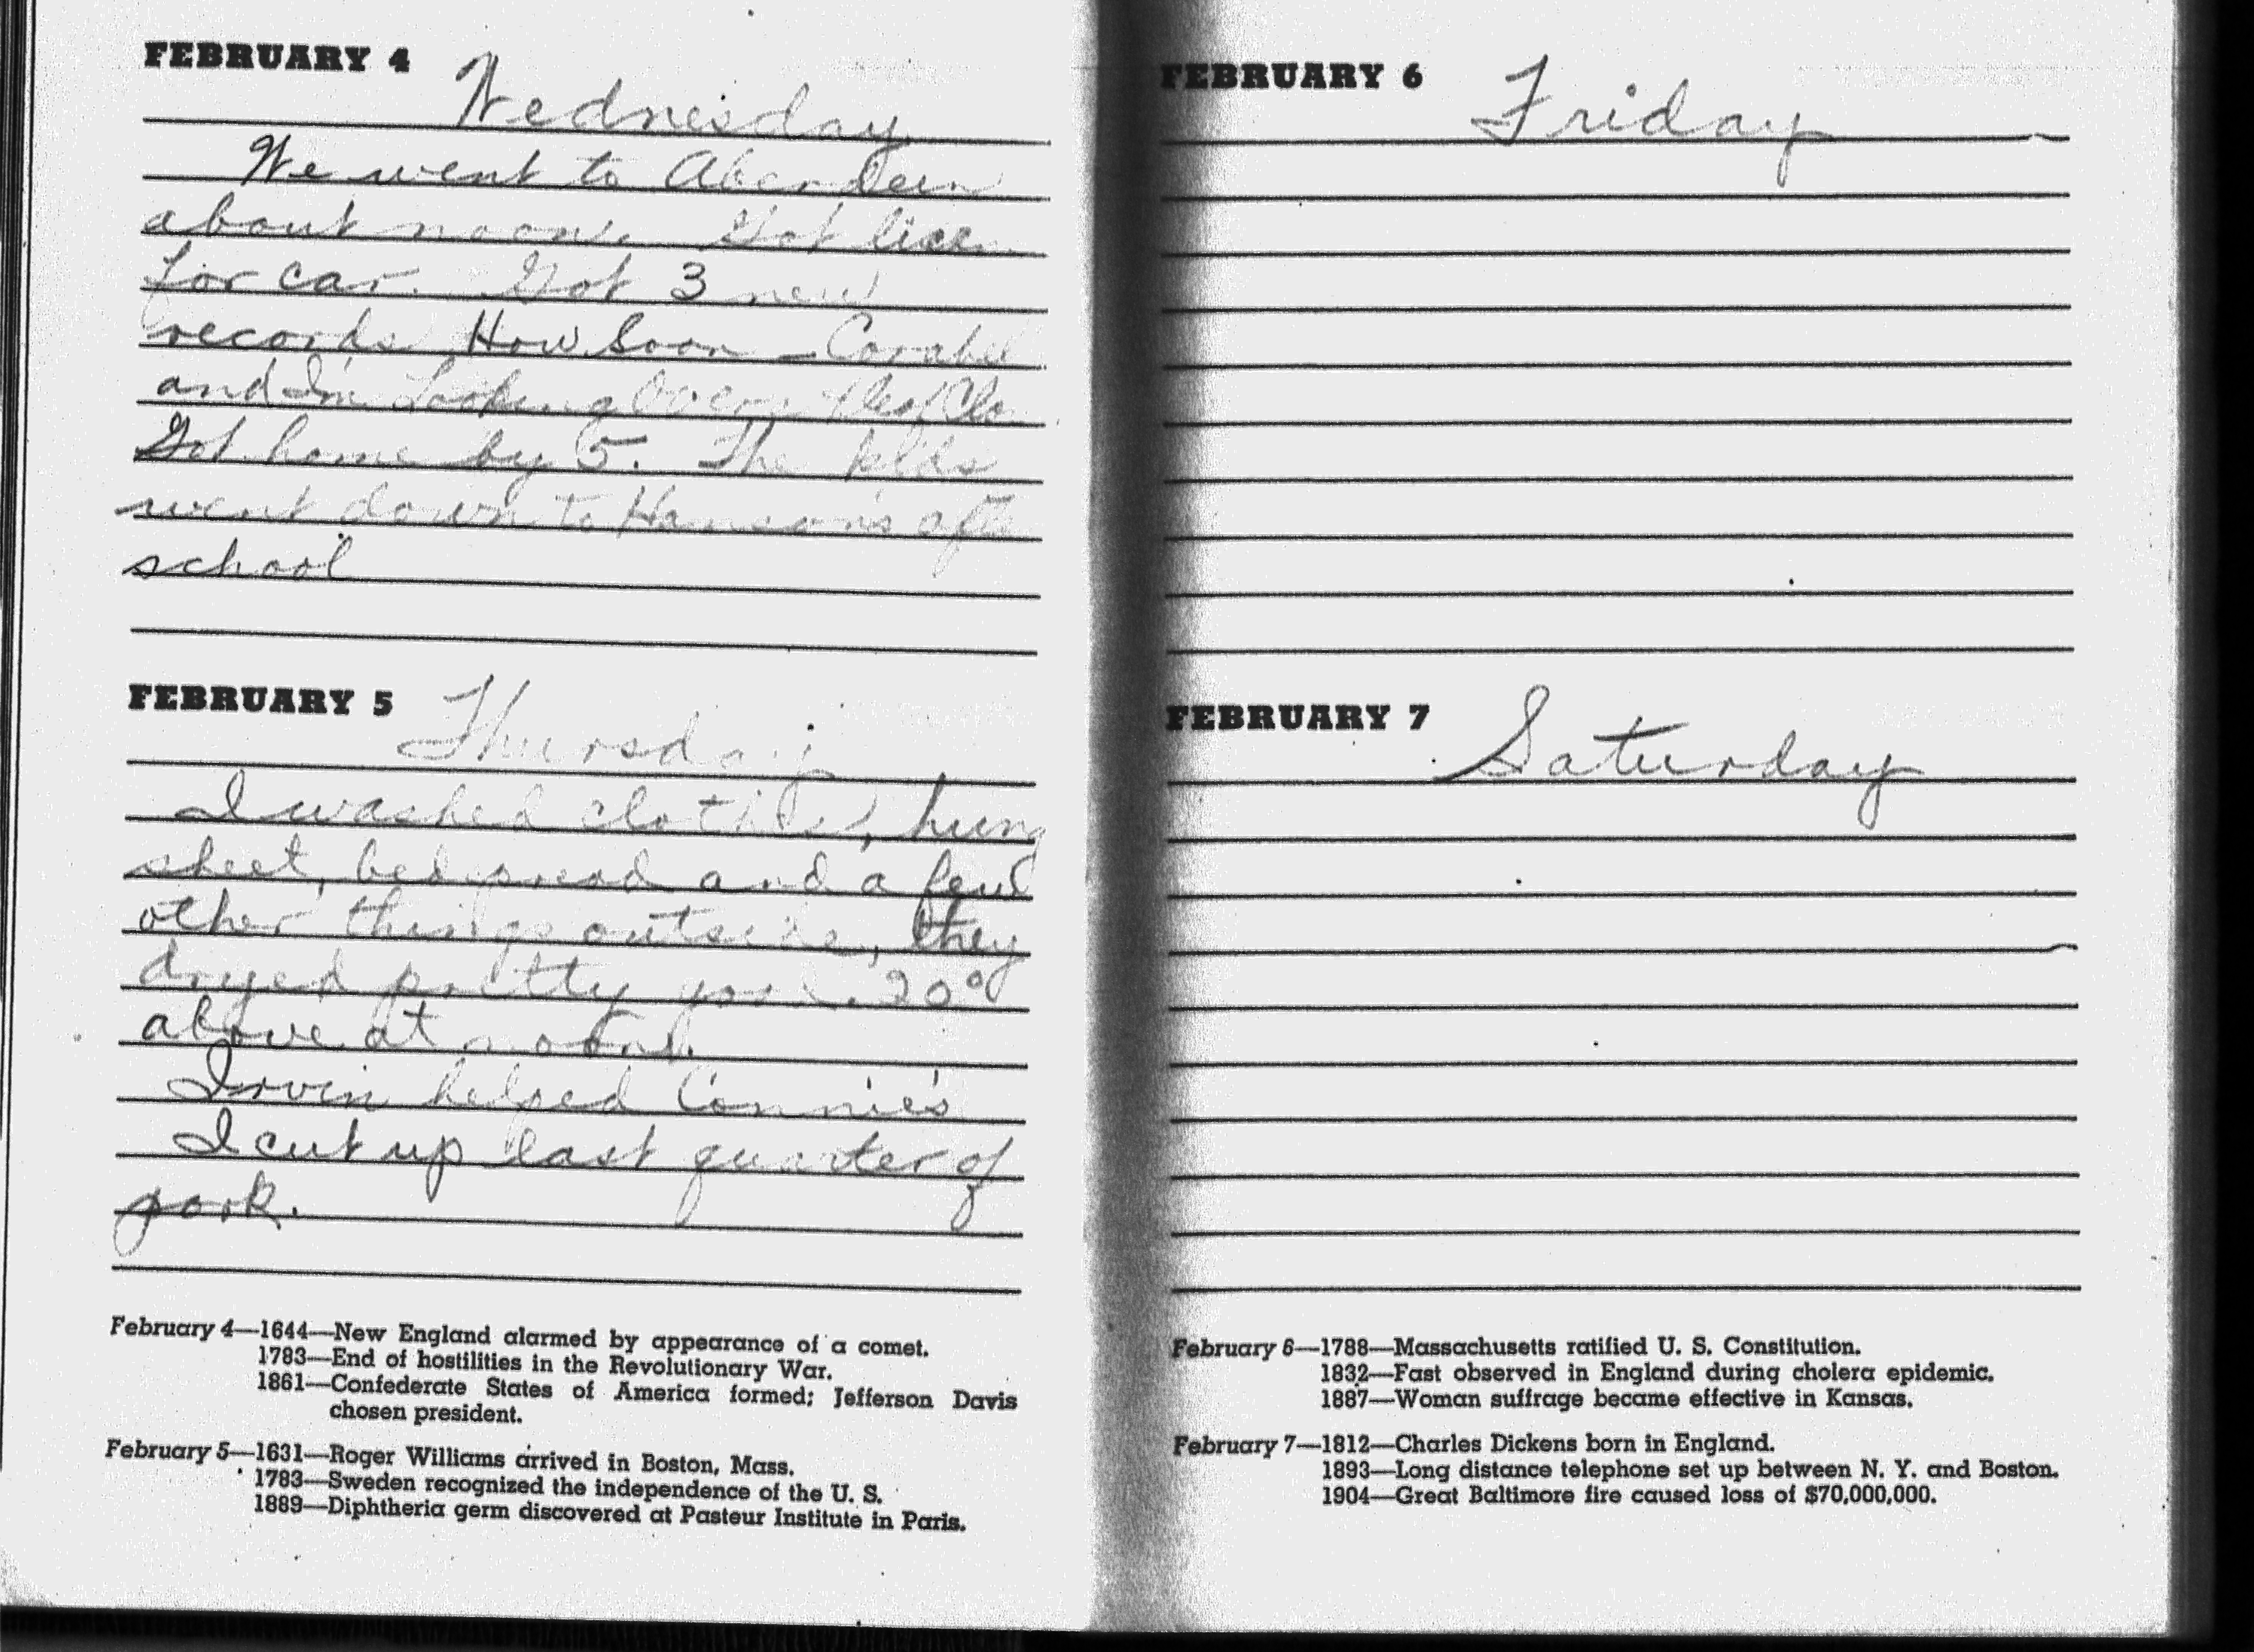 FEBRUARY 4 Wednesday
We went to Aberdeen
about noon. Got licen
for car. Got 3 new
records How Soon - Corabel
and I'm Looking Over
Got home by 5. The kids
went down to Hanson's after
school
FEBRUARY 5 Thursday
I washed clothes, hung
sheet, bedspread and a few
other things outside, they
dryed pretty good. 20°
above at noon.
Irvin helped Connie's
I cut up last quarter of
pork.
February 4—1644—New England alarmed by appearance of a comet.
1783—End of hostilities in the Revolutionary War.
1861—Confederate States of America formed; Jefferson Davis
chosen president.
February 5—1631—Roger Williams arrived in Boston, Mass.
1783—Sweden recognized the independence of the U. S.
1889—Diphtheria germ discovered at Pasteur Institute in Paris.
FEBRUARY 6 Friday
FEBRUARY 7 Saturday
February 6—1788—Massachusetts ratified U. S. Constitution.
1832—Fast observed in England during cholera epidemic.
1887—Woman suffrage became effective in Kansas.
February 7—1812—Charles Dickens born in England.
1893—Long distance telephone set up between N. Y. and Boston.
1904—Great Baltimore fire caused loss of $70,000,000.